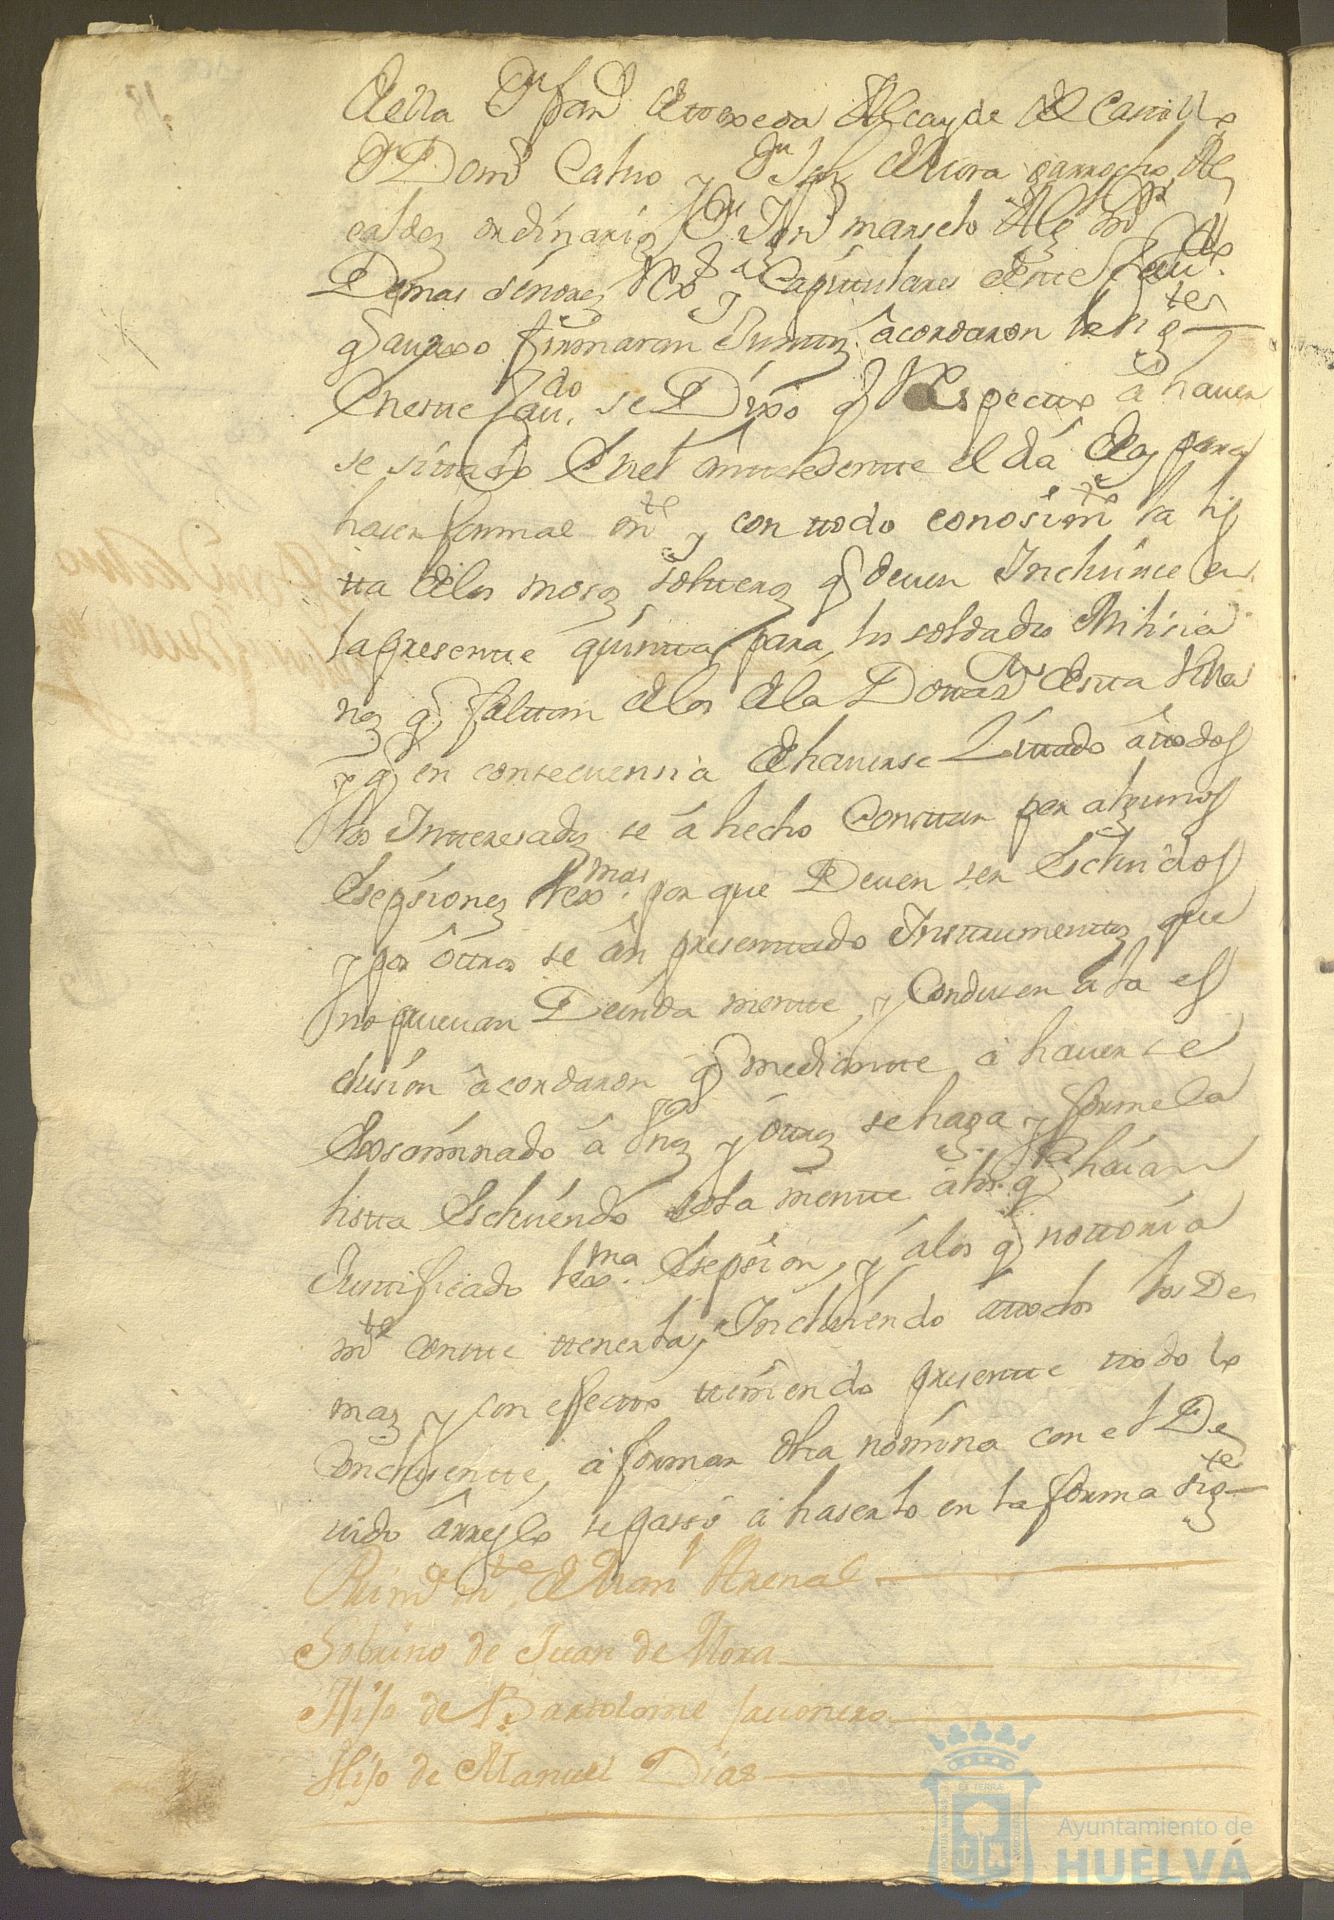 della Dn fran.do de toxpeda Alcayde del Castillo
Dn Domo Calvo y Dn Jph de Mora garrocho Al
caldes ordinarios Dn Jph marselo Alg. mr y los
Demas señores Rexs y Capitulares deste Cau.do
q avaxo firmaran Juntos acordaron lo sigtes
En este Cau.do se Dixo q Respecto â haver
se sittado en el antesedente el dia de oy para
hacer formal mte y con todo conosimte la lis
ta de los mosos solteros q deven Incluirse en
la presente quinta para los soldados Milisia
nos q faltan de los de la Dottasn desta Villa
y q en consecuensia de haverse Zittado âtodos
los Interesados se â hecho Constar por algunos
Esepsiones lexmas por que Deven ser Escluidos
y por ôtros se ân presentado Instrumentos que
no pruevan Devida mente, y Conducen a la es
clusion acordaron q mediante â haverse
Exsaminado â Unos y ôtros se haga y forme la
lista Escluiendo sola mente âlos q la haian
Justificado lexma Esepsion, y âlos q nottoria
mte conste tenerla, Incluiendo âtodos los De
mas y con efecto teniendo presente todo lo
Conducente, â formar dha nomina con el De
vido ârreglo se passó â haserlo en la forma sigte
Primte mte de Juan Arenas
Sobrino de Juan de Mora
Hijo de Bartolome
Hijo de Manuel Dias
Ayuntamiento de
HUELVA